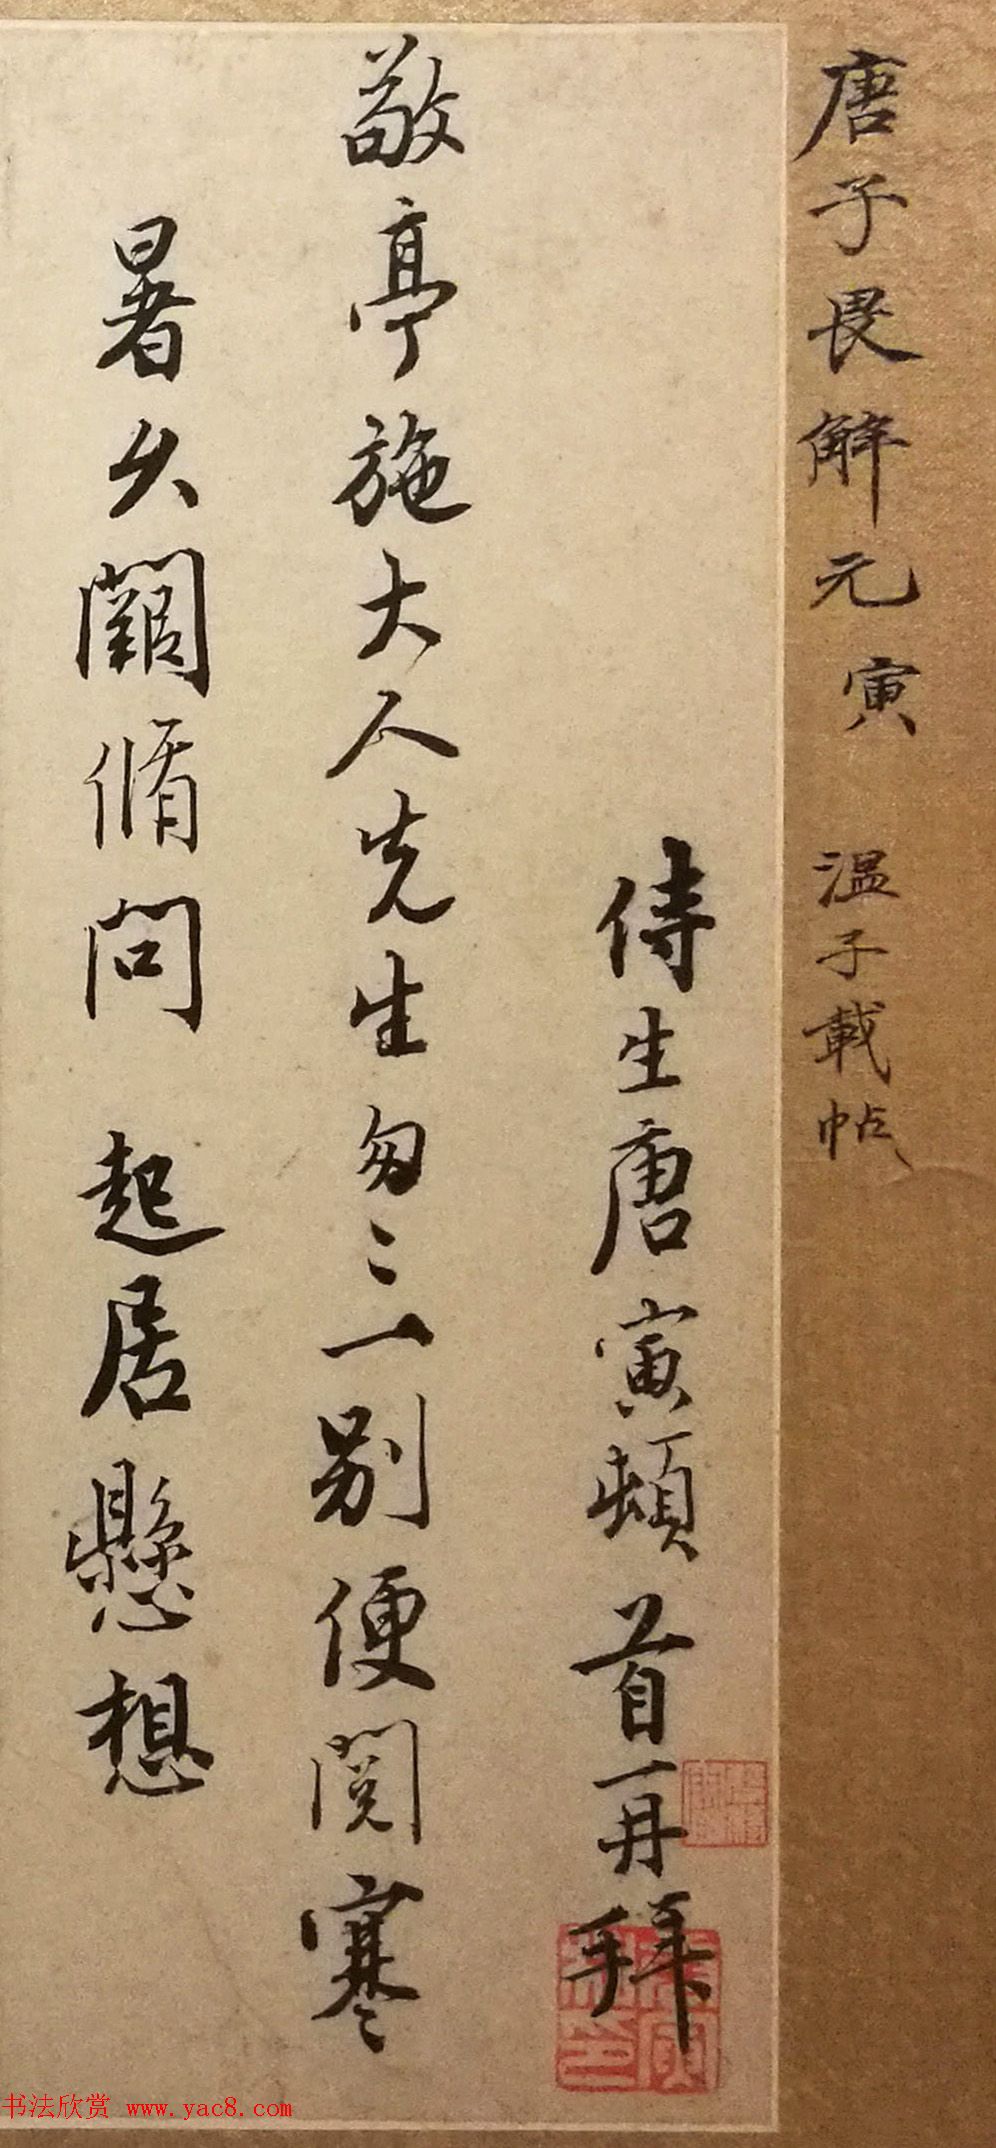 唐子畏解元寅 溫子載帖
侍生唐寅頓首再拜
敬亭施大人先生匆〻一别便閲寒
暑久闊脩問 起居懸想
书法欣赏 www.yac8.com